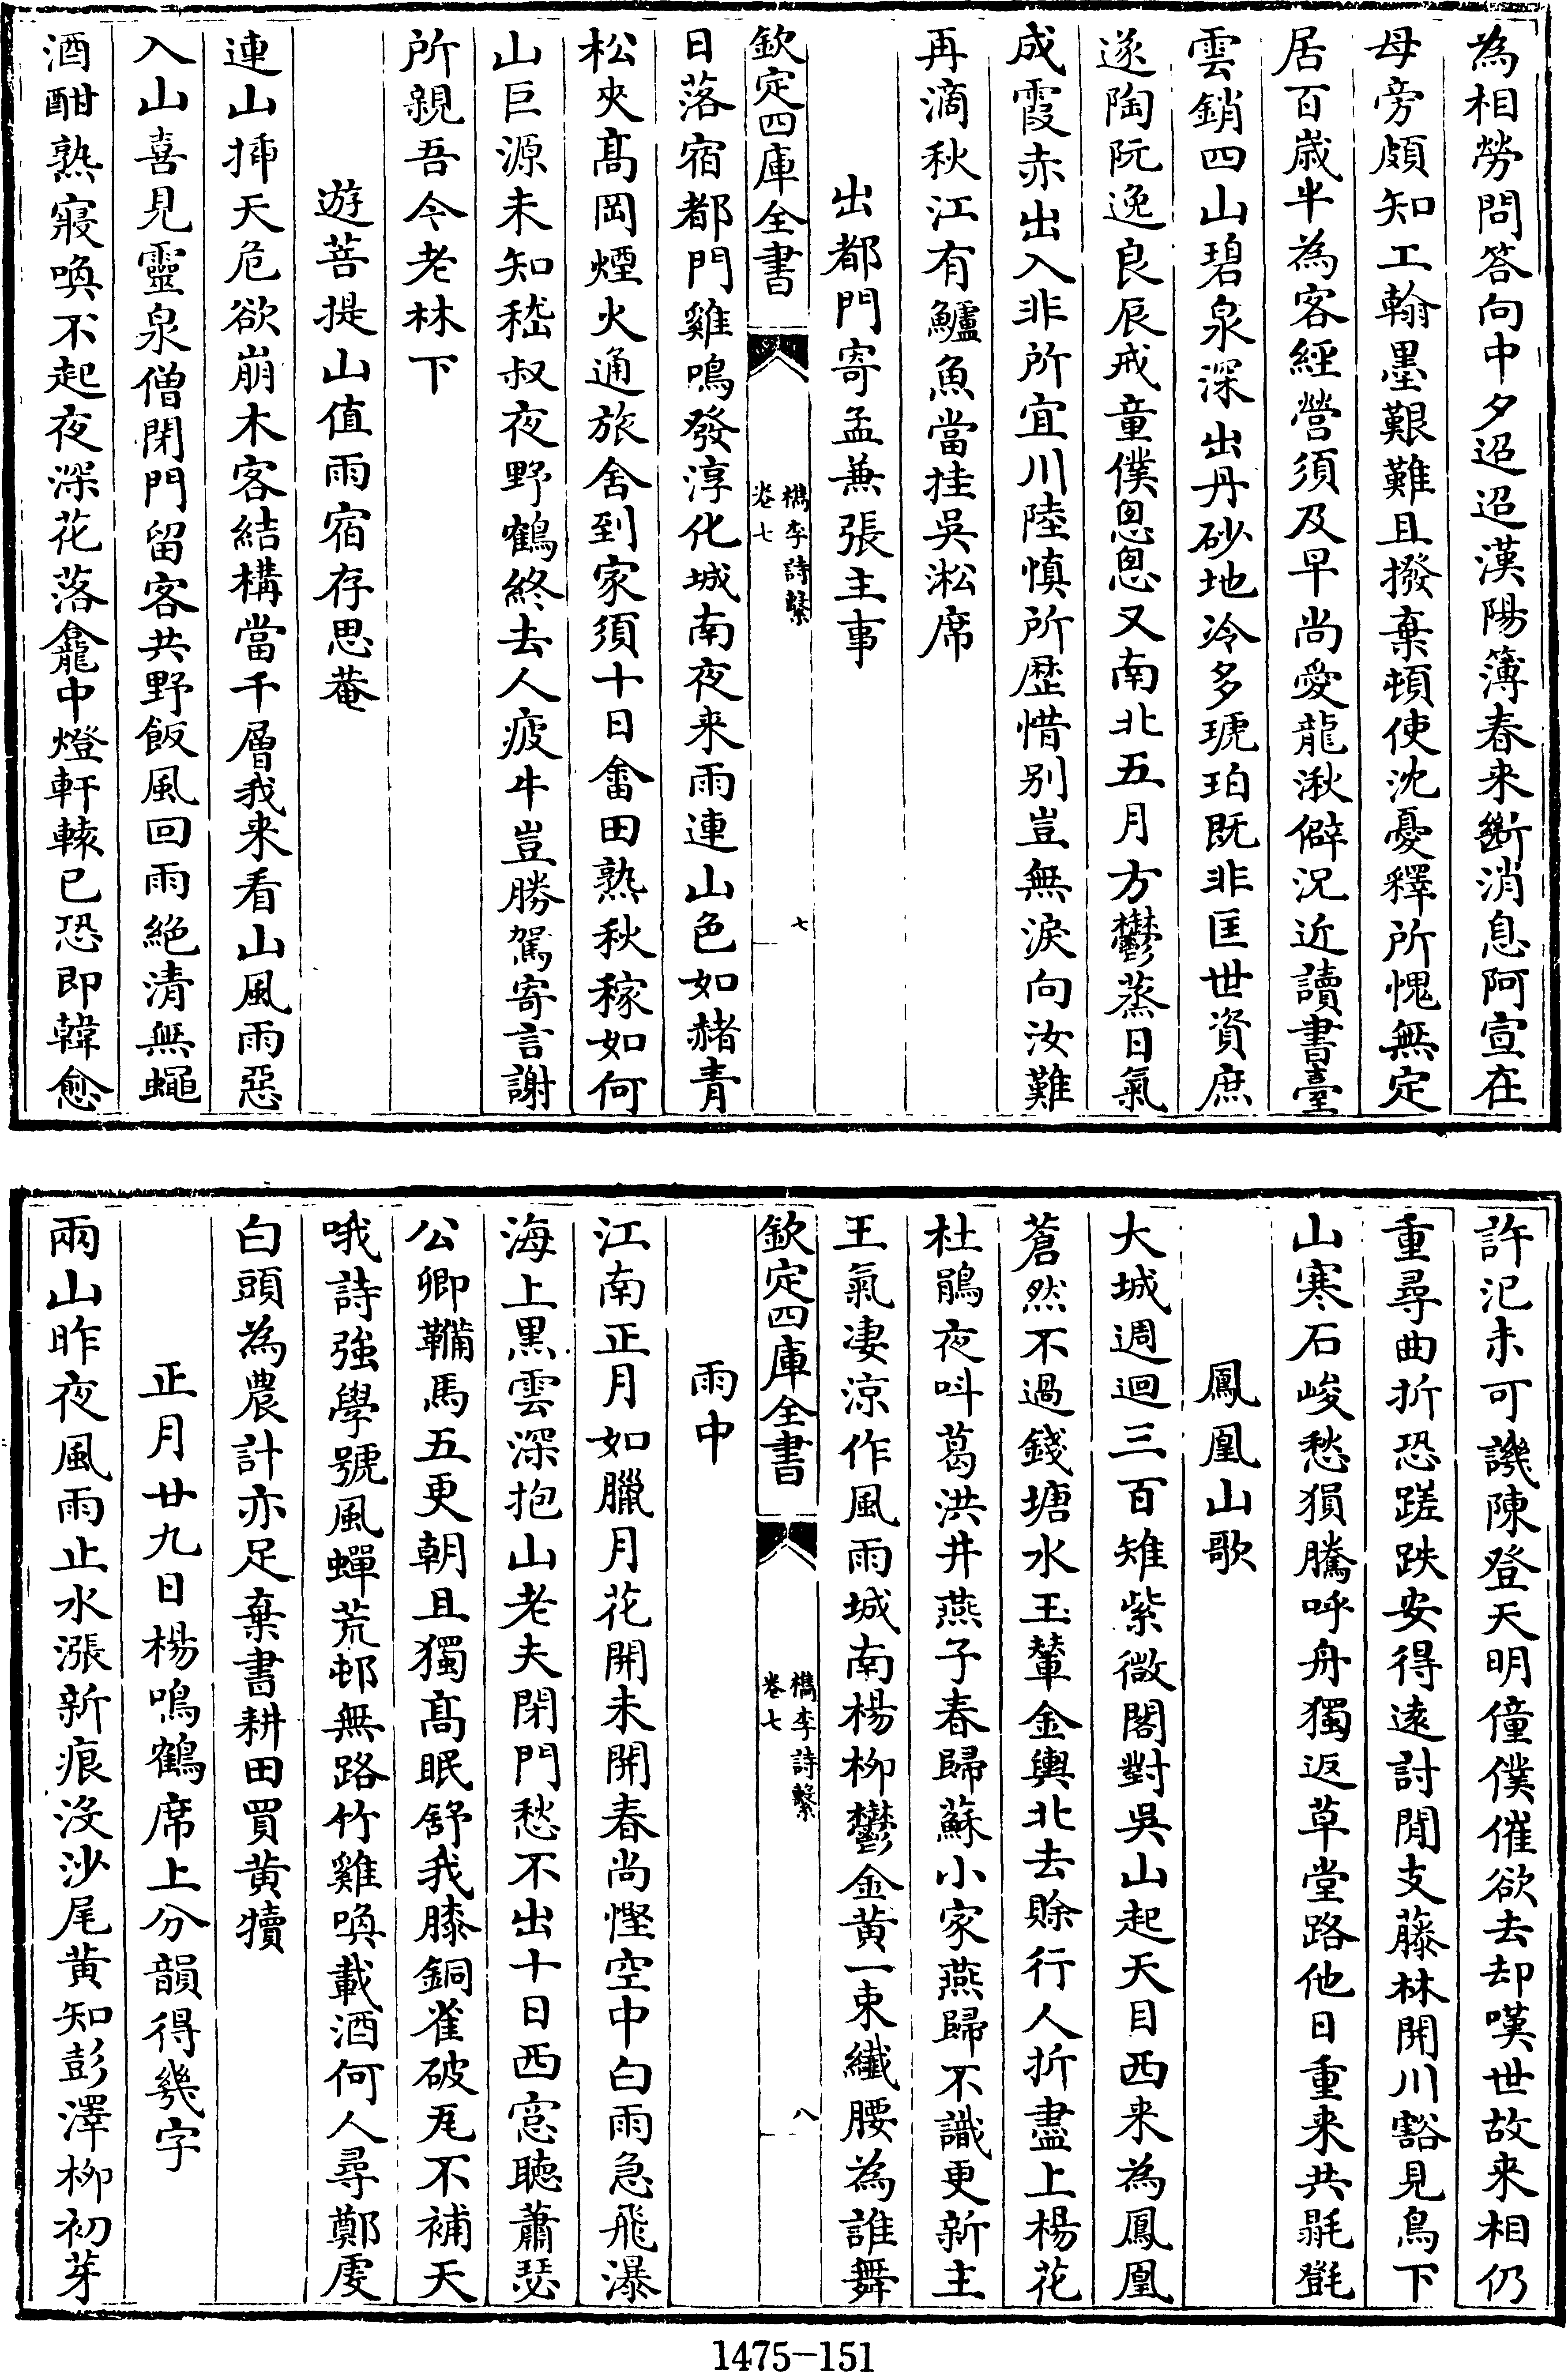 為相勞問答向中夕迢迢漢陽簿春来斷消息阿宣在
母旁頗知工翰墨艱難且撥棄頓使沈憂釋所愧無定
居百嵗半為客經營須及早尚愛龍湫僻況近讀書臺
雲銷四山碧泉深出丹砂地冷多琥珀既非匡世資庶
遂陶阮逸良辰戒童僕恩恩又南北五月方鬱蒸日氣
成霞赤出入非所宜川陸慎所歴惜别豈無淚向汝難
再滴秋江有鱸魚當挂吳淞席
出都門寄孟兼張主事
欽定四庫全書
檇李詩繫
卷七
七
日落宿都門雞鳴發淳化城南夜来雨連山色如赭青
松夾髙岡煙火通旅舍到家須十日畬田熟秋稼如何
山巨源未知嵇叔夜野鶴終去人疲牛豈勝駕寄言謝
所親吾今老林下
遊菩提山值雨宿存思菴
連山揷天危欲崩木客結構當千層我来看山風雨惡
入山喜見靈泉僧閉門留客共野飯風回雨絶清無蠅
酒酣熟寢喚不起夜深花落龕中燈軒轅已恐即韓愈
許汜未可譏陳登天明僮僕催欲去却嘆世故来相仍
重尋曲折恐蹉跌安得逺討閒支藤林開川豁見鳥下
山寒石峻愁猨騰呼舟獨返草堂路他日重来共毾㲪
鳳凰山歌
大城週迴三百雉紫微閣對吳山起天目西来為鳳凰
蒼然不過錢塘水玉輦金輿北去賒行人折盡上楊花
杜鵑夜呌葛洪井燕子春歸蘇小家燕歸不識更新主
王氣凄涼作風雨城南楊柳鬱金黄一束纖腰為誰舞
欽定四庫全書
檇李詩繫
卷七
八
雨中
江南正月如臘月花開未開春尚慳空中白雨急飛瀑
海上黒雲深抱山老夫閉門愁不出十日西窓聴蕭瑟
公卿鞴馬五更朝且獨髙眠舒我膝銅雀破瓦不補天
哦詩強學號風蟬荒邨無路竹雞喚載酒何人尋鄭虔
白頭為農計亦足棄書耕田買黄犢
正月廿九日楊鳴鶴席上分韻得幾字
兩山昨夜風雨止水漲新痕沒沙尾黄知彭澤柳初芽
1475-151